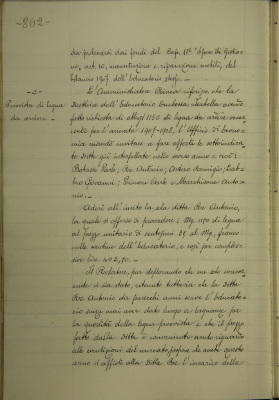 -862-
da prelevarsi dai fondi del Cap. 11° "Spese di Gestio-
ne, art. 10, manutenzione e riparazione mobili, del
bilancio 1907 dell'Educatorio stesso.
-c-
Provvista di legna
da ardere.
L'Amministratore riferisce che la
Direttrice dell'Educatorio Isabella avendo
fatto richiesta di Mg. 1150 di legna da ardere
per l'annata 1907-1908, l'Ufficio di Econo-
mia mandò invitare a fare offerte le sottoindica-
te Ditte già interpellate nello scorso anno e cioè:
Paolo; Re Antonio;
Giovanni; Carlo e Marchisone Anto-
nio.
Aderì all'invito la sola ditta Re Antonio,
la quale si offerse di provvedere i Mg. 1150 di legna
al prezzo unitario di centesimi al Mg. franco
nelle cantine dell'Educatorio, e così per comples-
sive lire
Il Relatore, pur deplorando che un solo concor-
rente si sia dato, ritenuto tuttavia che la Ditta
Re Antonio da parecchi anni serve l'Educato-
rio senza mai aver dato luogo a lagnanze per
la qualità della legna provvista e che il prezzo
fatto dalla Ditta è conveniente avuto riguardo
alle condizioni del mercato, propone che anche questo
anno si affidi alla Ditta Re l'incarico della